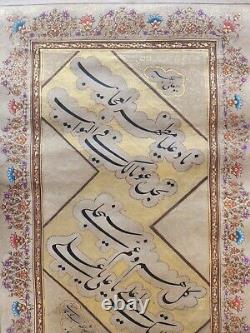 ناد علیا مظهر العجایب
تجده عونا لک فی النوایب
کل هم و غم سینجلی
بولایتک یا علی یا علی